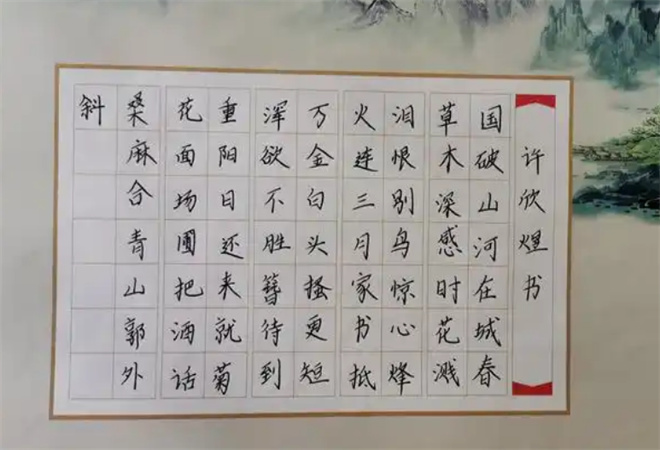 许欣煜书
国破山河在城春
草木深感时花溅
泪恨别鸟惊心烽
火连三月家书抵
万金白头搔更短
浑欲不胜簪待到
重阳日还来就菊
花面场圃把酒话
桑麻合青山郭外
斜